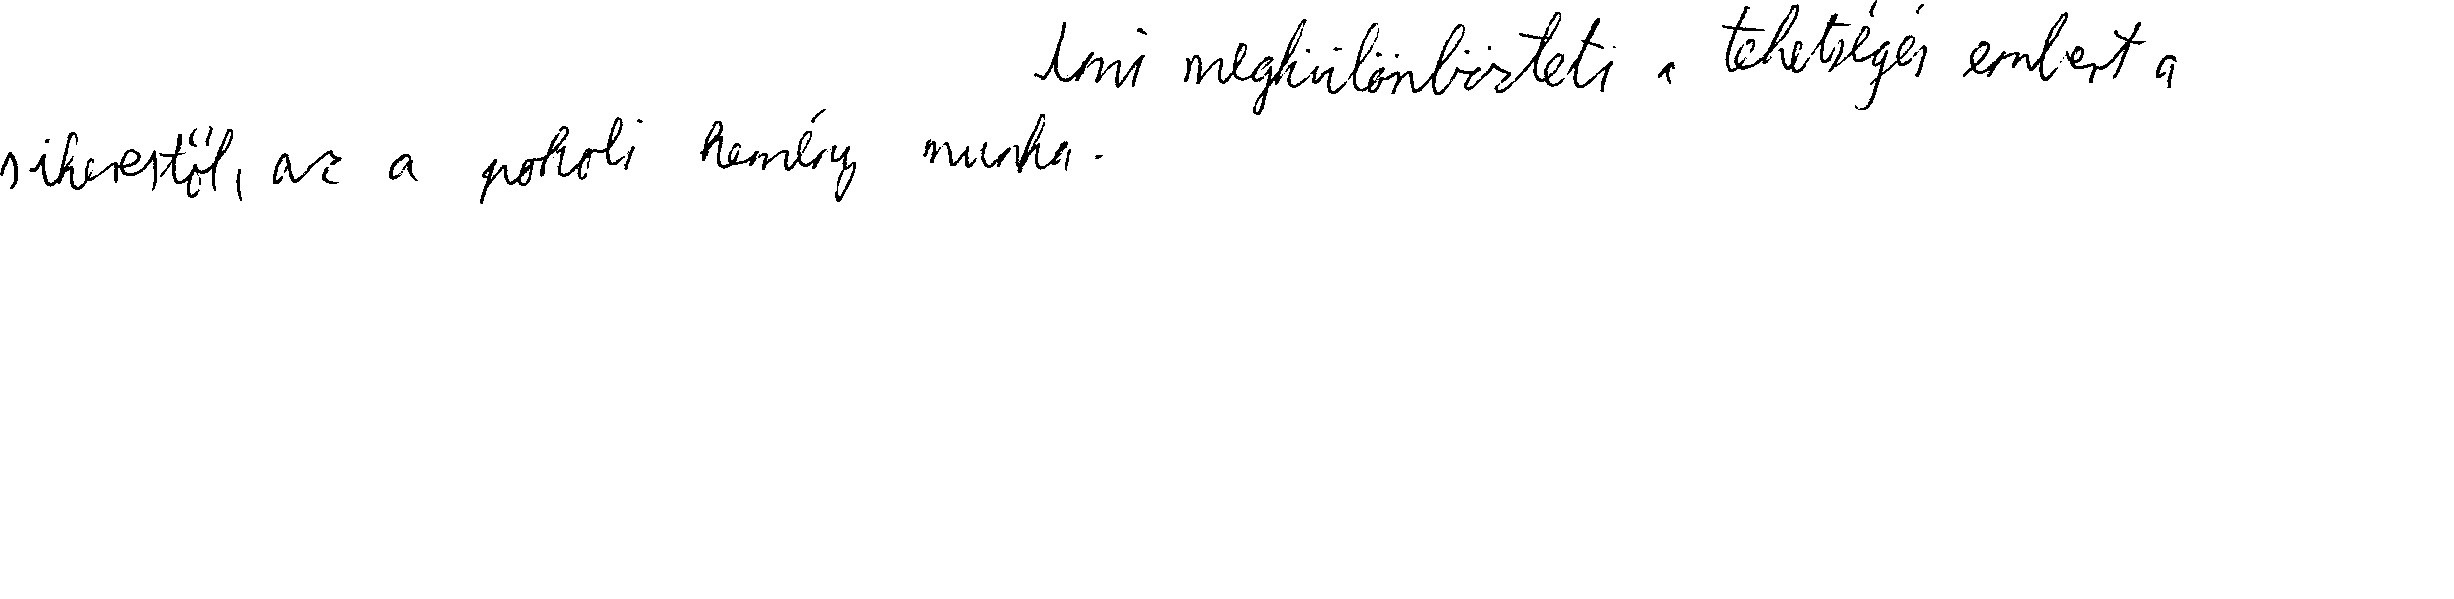 Ami megkülönbözteti a tehetségés embert a
sikerestől, az a pokoli kemény munka.